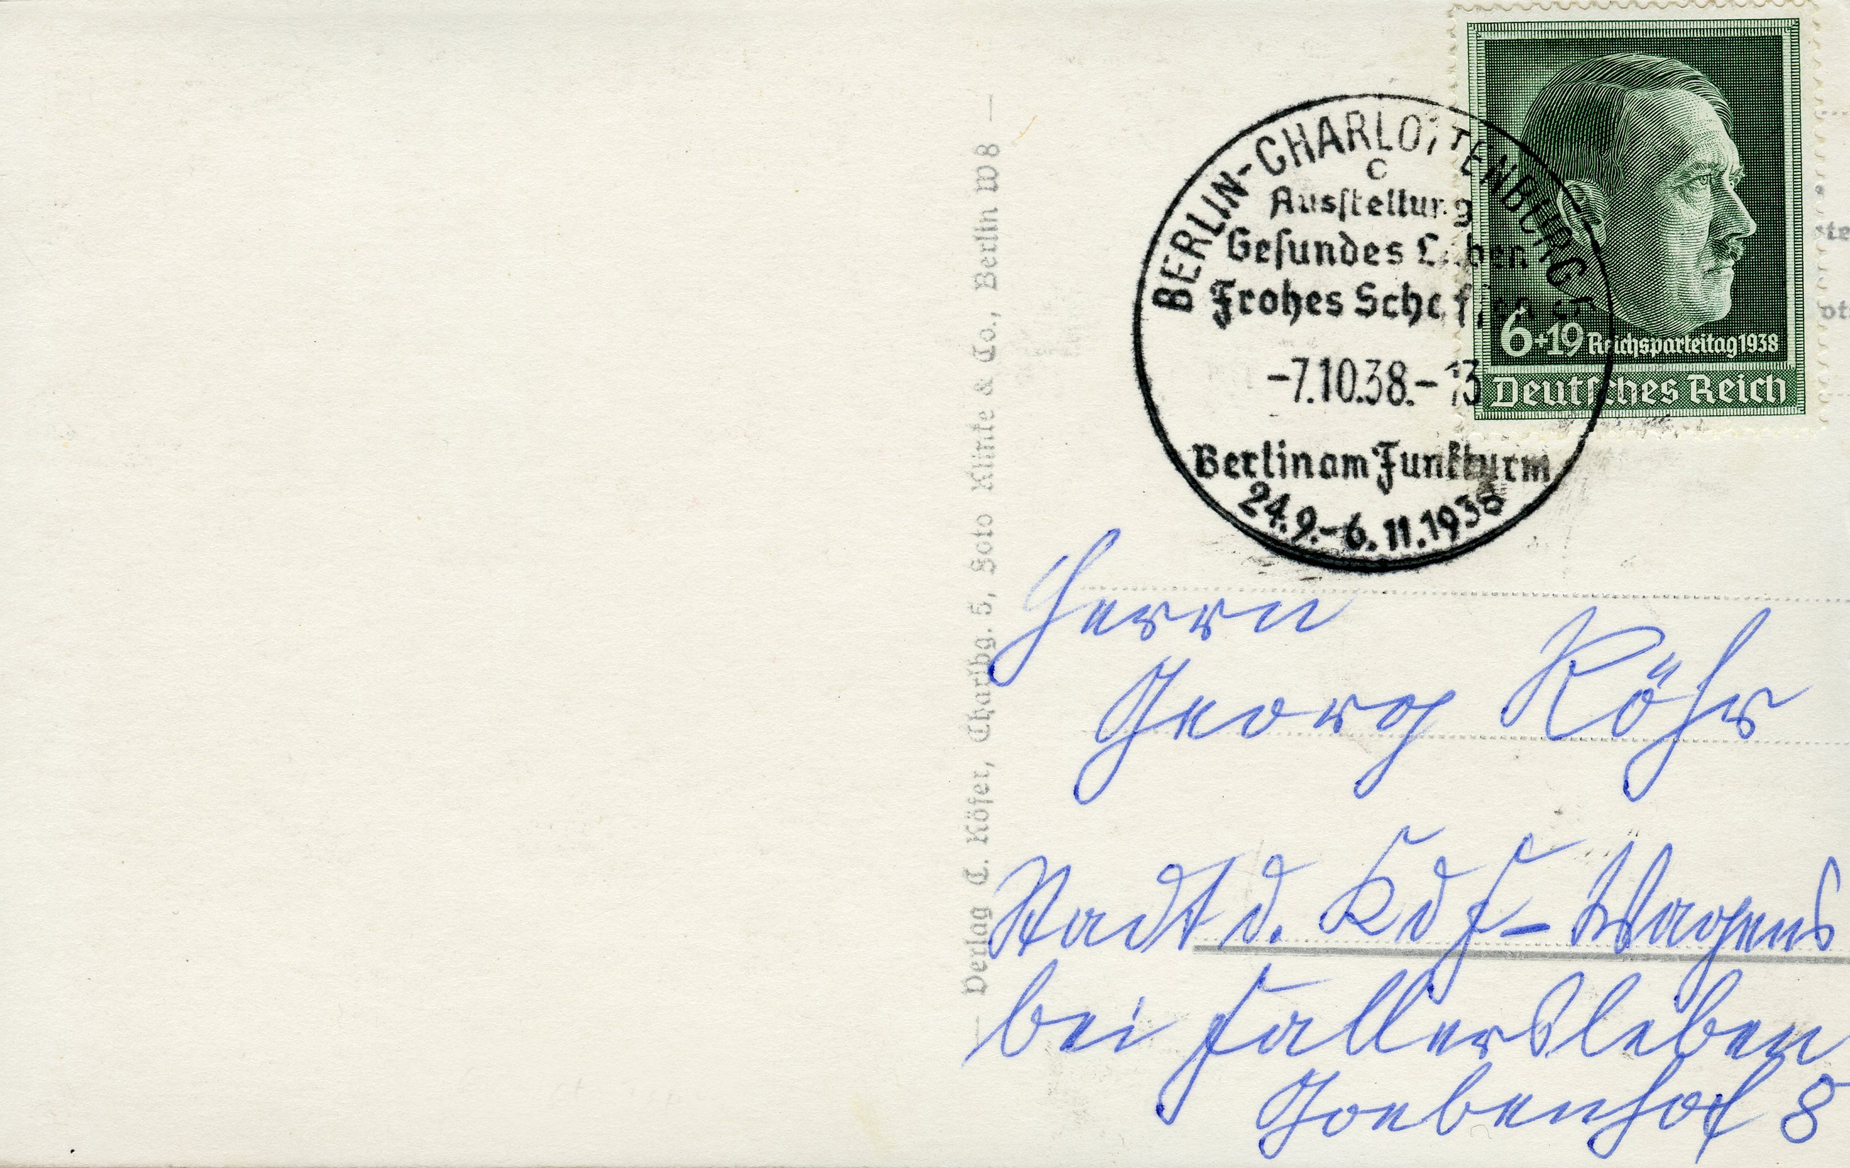 Verlag C. Köfer, Charlbg. 5, Foto Klinke & Co., Berlin W 8
BERLIN-CHARLOTTENBURG
c
Ausstellung
Gesundes Leben
Frohes Schaffen
-7.10.38.-13
Berlin am Funkturm
24.9.-6.11.1938
6+19 Reichsparteitag 1938
Deutsches Reich
Herrn
Georg Röhr
Stadt d. KdF-Wagens
bei Fallersleben
8